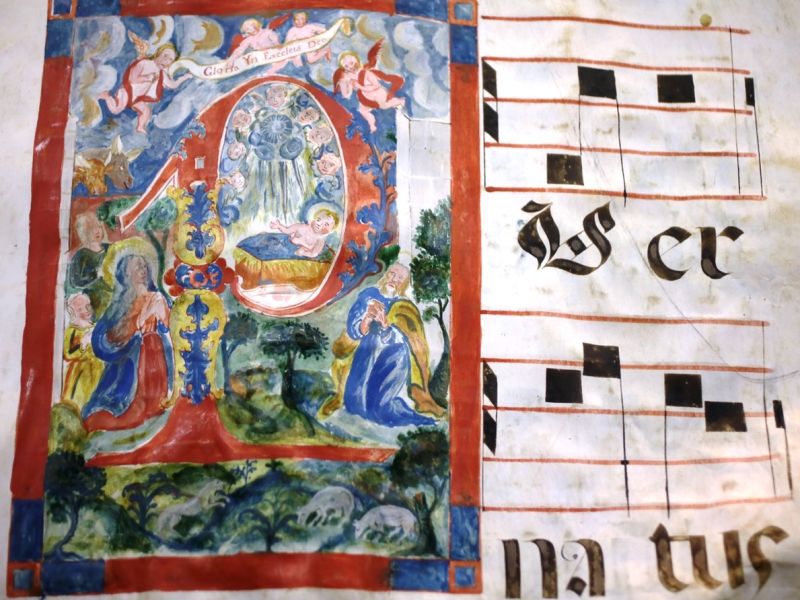 Gloria Yn Excelcis Deo
P
U er
na tus